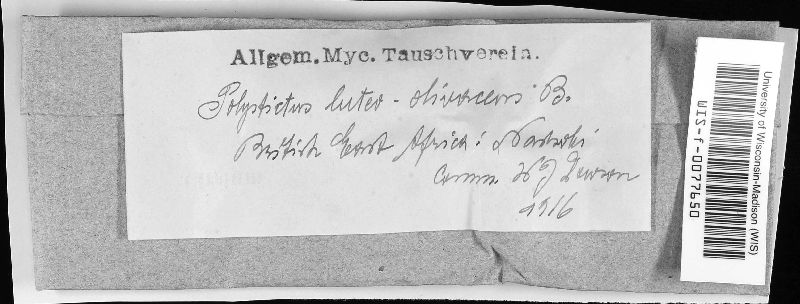 Allgem. Myc. Tauschverein.
Polystictus luteo-olivaceus B.
British East Africa: Nairobi
Comm. W J Dowson
1916
University of Wisconsin-Madison (WIS)
WIS-f-0077650